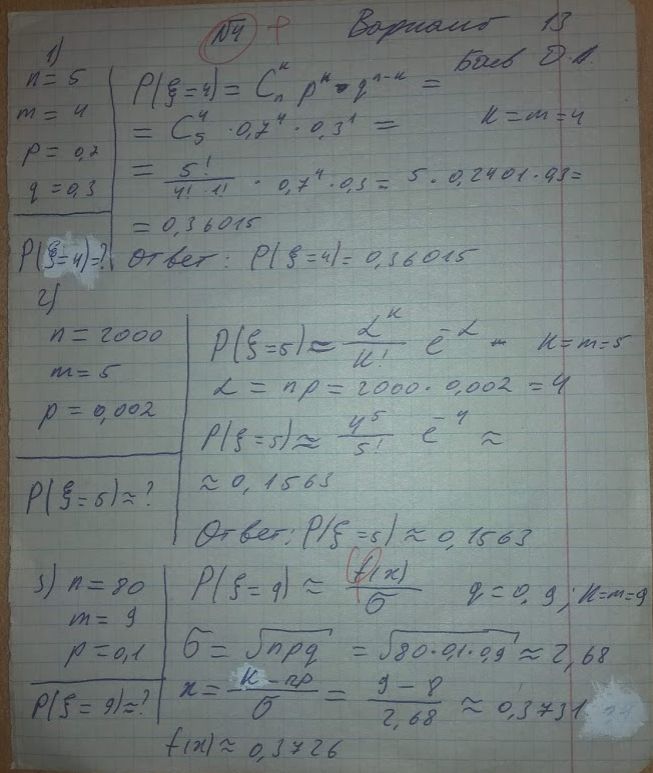 №4 + Вариант 13
Баев О.А.
1)
n = 5
m = 4
p = 0,7
q = 0,3
P(ξ=4)=?
P(ξ=4) = C_n^k p^k · q^{n-k} =
= C_5^4 · 0,7^4 · 0,3^1 = k=m=4
= 5!/(4! · 1!) · 0,7^4 · 0,3 = 5 · 0,2401 · 0,3 =
= 0,36015
Ответ: P(ξ=4) = 0,36015
2)
n = 2000
m = 5
p = 0,002
P(ξ=5)≈?
P(ξ=5) ≈ α^k/k! e^{-α} - k=m=5
α = np = 2000 · 0,002 = 4
P(ξ=5) ≈ 4^5/5! e^{-4} ≈
≈ 0,1563
Ответ: P(ξ=5) ≈ 0,1563
3) n = 80
m = 9
p = 0,1
P(ξ=9)≈?
P(ξ=9) ≈ f(x)/σ q = 0,9; k=m=9
σ = √npq = √80·0,1·0,9 ≈ 2,68
x = (k-np)/σ = (9-8)/2,68 ≈ 0,3731
f(x) ≈ 0,3726